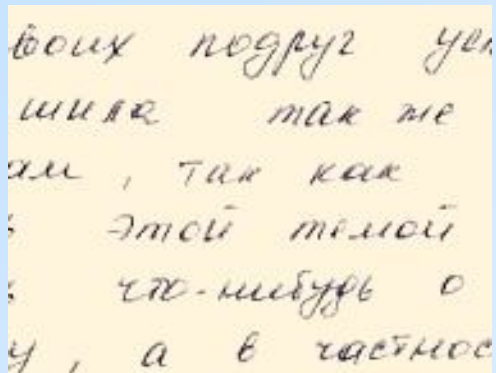 воих подруг усп
шила так же
ам, так как
этой темой
что-нибудь о
у, а в частнос